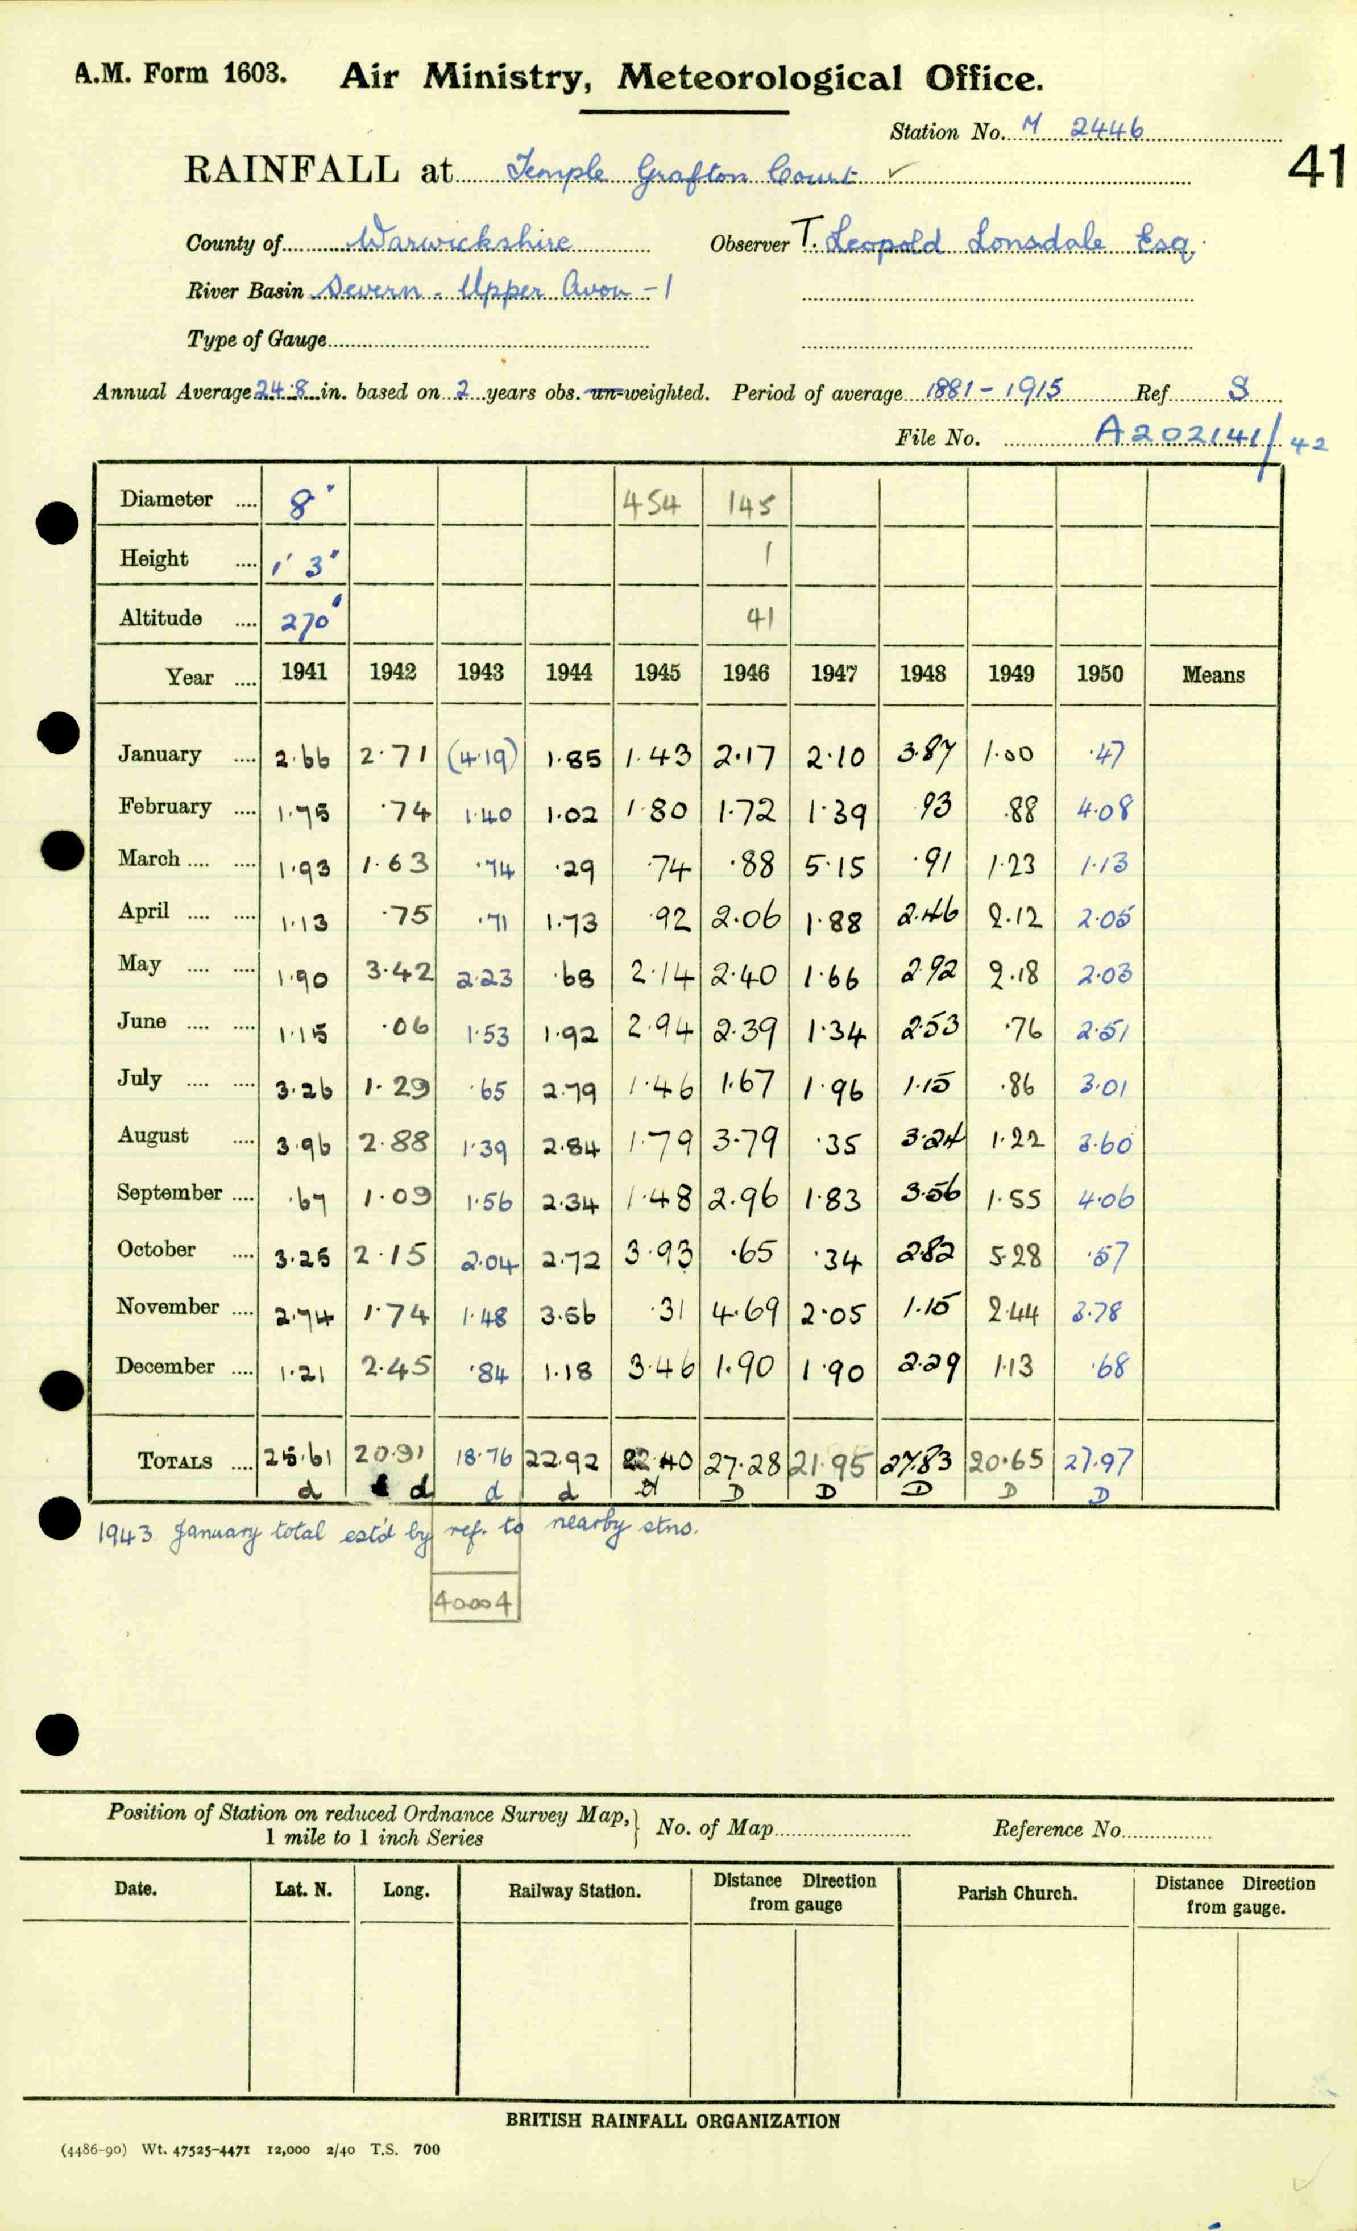 A.M. Form 1603. Air Ministry, Meteorological Office.
Station No. M 2446
41
RAINFALL at Temple Grafton Court ✓
County of Warwickshire Observer T. Leopold Lonsdale Esq.
River Basin Severn - Upper Avon - 1
Type of Gauge
Annual Average 24.8 in. based on 2 years obs. un-weighted. Period of average 1881 - 1915 Ref S
File No. A202141/42
Diameter .... 8" 454 145
Height .... 1' 3" 1
Altitude .... 270' 41
Year .... 1941 1942 1943 1944 1945 1946 1947 1948 1949 1950 Means
January .... 2.66 2.71 (4.19) 1.85 1.43 2.17 2.10 3.87 1.00 .47
February .... 1.75 .74 1.40 1.02 1.80 1.72 1.39 .93 .88 4.08
March .... .... 1.93 1.63 .74 .29 .74 .88 5.15 .91 1.23 1.13
April .... .... 1.13 .75 .71 1.73 .92 2.06 1.88 2.46 2.12 2.05
May .... .... 1.90 3.42 2.23 .68 2.14 2.40 1.66 2.92 2.18 2.03
June .... .... 1.15 .06 1.53 1.92 2.94 2.39 1.34 2.53 .76 2.51
July .... .... 3.26 1.29 .65 2.79 1.46 1.67 1.96 1.15 .86 3.01
August .... 3.96 2.88 1.39 2.84 1.79 3.79 .35 3.24 1.22 3.60
September .... .67 1.09 1.56 2.34 1.48 2.96 1.83 3.56 1.55 4.06
October .... 3.25 2.15 2.04 2.72 3.93 .65 .34 2.82 5.28 .57
November .... 2.74 1.74 1.48 3.56 .31 4.69 2.05 1.15 2.44 3.78
December .... 1.21 2.45 .84 1.18 3.46 1.90 1.90 2.29 1.13 .68
TOTALS .... 25.61 20.91 18.76 22.92 22.40 27.28 21.95 27.83 20.65 27.97
d d d d d D D D D D
1943 January total est'd by ref. to nearby stns.
40004
Position of Station on reduced Ordnance Survey Map,
1 mile to 1 inch Series } No. of Map Reference No.
Date. Lat. N. Long. Railway Station. Distance Direction from gauge Parish Church. Distance Direction from gauge.
BRITISH RAINFALL ORGANIZATION
(4486-90) Wt. 47525-4471 12,000 2/40 T.S. 700